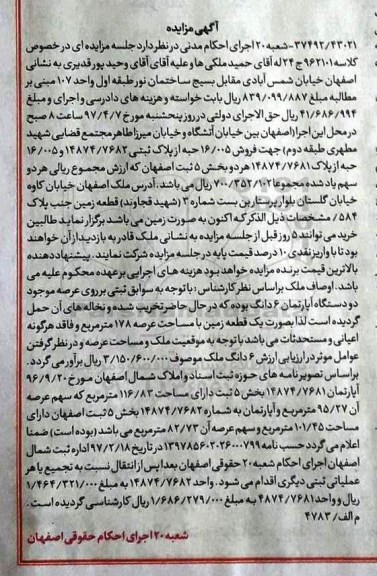 آگهی مزایده
۳۷۴۹۲/۴۳۰۲۱- شعبه ۲۰ اجرای احکام مدنی در نظر دارد جلسه مزایده ای در خصوص
کلاسه ۹۶۲۱۰۱ ج ۲۴ له آقای حمید ملکی ها و علیه آقای آقای وحید پور قدیری به نشانی
اصفهان خیابان شمس آبادی مقابل بسیج ساختمان نور طبقه اول واحد ۱۰۷ مبنی بر
مطالبه مبلغ ۸۳۹/۰۹۹/۸۸۷ ریال بابت خواسته و هزینه های دادرسی و اجرای و مبلغ
۴۱/۶۸۶/۹۹۴ ریال حق الاجرای دولتی در روز پنجشنبه مورخ ۹۷/۴/۷ ساعت ۸ صبح
در محل این اجرا (اصفهان بین خیابان آتشگاه و خیابان میرزا طاهر مجتمع قضایی شهید
مطهری طبقه دوم) جهت فروش ۱۶/۰۰۵ حبه از پلاک ثبتی ۱۴۸۷۴/۷۶۸۲ و ۱۶/۰۰۵
حبه از پلاک ۱۴۸۷۴/۷۶۸۱ هر دو بخش ۵ ثبت اصفهان که ارزش مجموع ریالی هر دو
سهم یاد شده مجموعا ۷۰۰/۳۵۲/۱۰۲ ریال می باشد. آدرس ملک اصفهان خیابان کاوه
خیابان گلستان بلوار پرستار بن بست شماره ۳ (شهید قجاوند) قطعه زمین جنب پلاک
۵۸۴ / مشخصات ذیل الذکر که اکنون به صورت زمین می باشد برگزار نماید طالبین
خرید می توانند ۵ روز قبل از جلسه مزایده به نشانی ملک قادر به بازدید از آن خواهند
بود تا با واریز نقدی ۱۰ درصد قیمت پایه در جلسه مزایده شرکت نمایند. پیشنهاد دهنده
بالاترین قیمت برنده مزایده خواهد بود هزینه های اجرایی بر عهده محکوم علیه می
باشد. اوصاف ملک براساس نظر کارشناس : با توجه به سوابق ثبتی بر روی عرصه موجود
دو دستگاه آپارتمان ۶ دانگ بوده که در حال حاضر تخریب شده و نخاله های آن حمل
گردیده است لذا بصورت یک قطعه زمین با مساحت عرصه ۱۷۸ مترمربع و فاقد هرگونه
اعیانی و مستحدثات می باشد با توجه به موقعیت ملک و مساحت عرصه و در نظر گرفتن
عوامل موثر در ارزیابی ارزش ۶ دانگ ملک موصوف ۳/۱۵۰/۶۰۰/۰۰۰ ریال برآور می گردد.
براساس تصویر نامه های حوزه ثبت اسناد و املاک شمال اصفهان مورخ ۹۶/۹/۲۰
آپارتمان ۱۴۸۷۴/۷۶۸۱ بخش ۵ ثبت دارای مساحت ۱۱۶/۸۳ مترمربع که سهم عرصه
آن ۹۵/۲۷ مترمربع و آپارتمان به شماره ۱۴۸۷۴/۷۶۸۲ بخش ۵ ثبت اصفهان دارای
مساحت ۱۰۱/۴۵ مترمربع و سهم عرصه آن ۸۲/۷۳ مترمربع می باشد (بوده است) ضمنا
اعلام می گردد حسب نامه ۱۳۹۷۸۵۶۰۲۰۲۶۰۰۰۷۹۹ در تاریخ ۹۷/۲/۱۸ اداره ثبت شمال
اصفهان اجرای احکام شعبه ۲۰ حقوقی اصفهان بعد از پس از انتقال نسبت به تجمیع یا هر
عملیاتی ثبتی دیگری اقدام می شود. واحد ۱۴۸۷۴/۷۶۸۲ به مبلغ ۱/۴۶۴/۳۲۱/۰۰۰
ریال و واحد ۴۸۷۴/۷۶۸۱ به مبلغ ۱/۶۸۶/۲۷۹/۰۰۰ ریال کارشناسی گردیده است.
م الف/ ۴۷۸۳
شعبه ۲۰ اجرای احکام حقوقی اصفهان